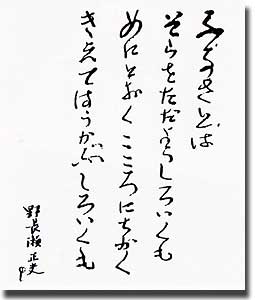 ふるさとは
そらをただようしろいくも
めにとおくこころにちかく
きえてはうかぶしろいくも
野長瀬正夫